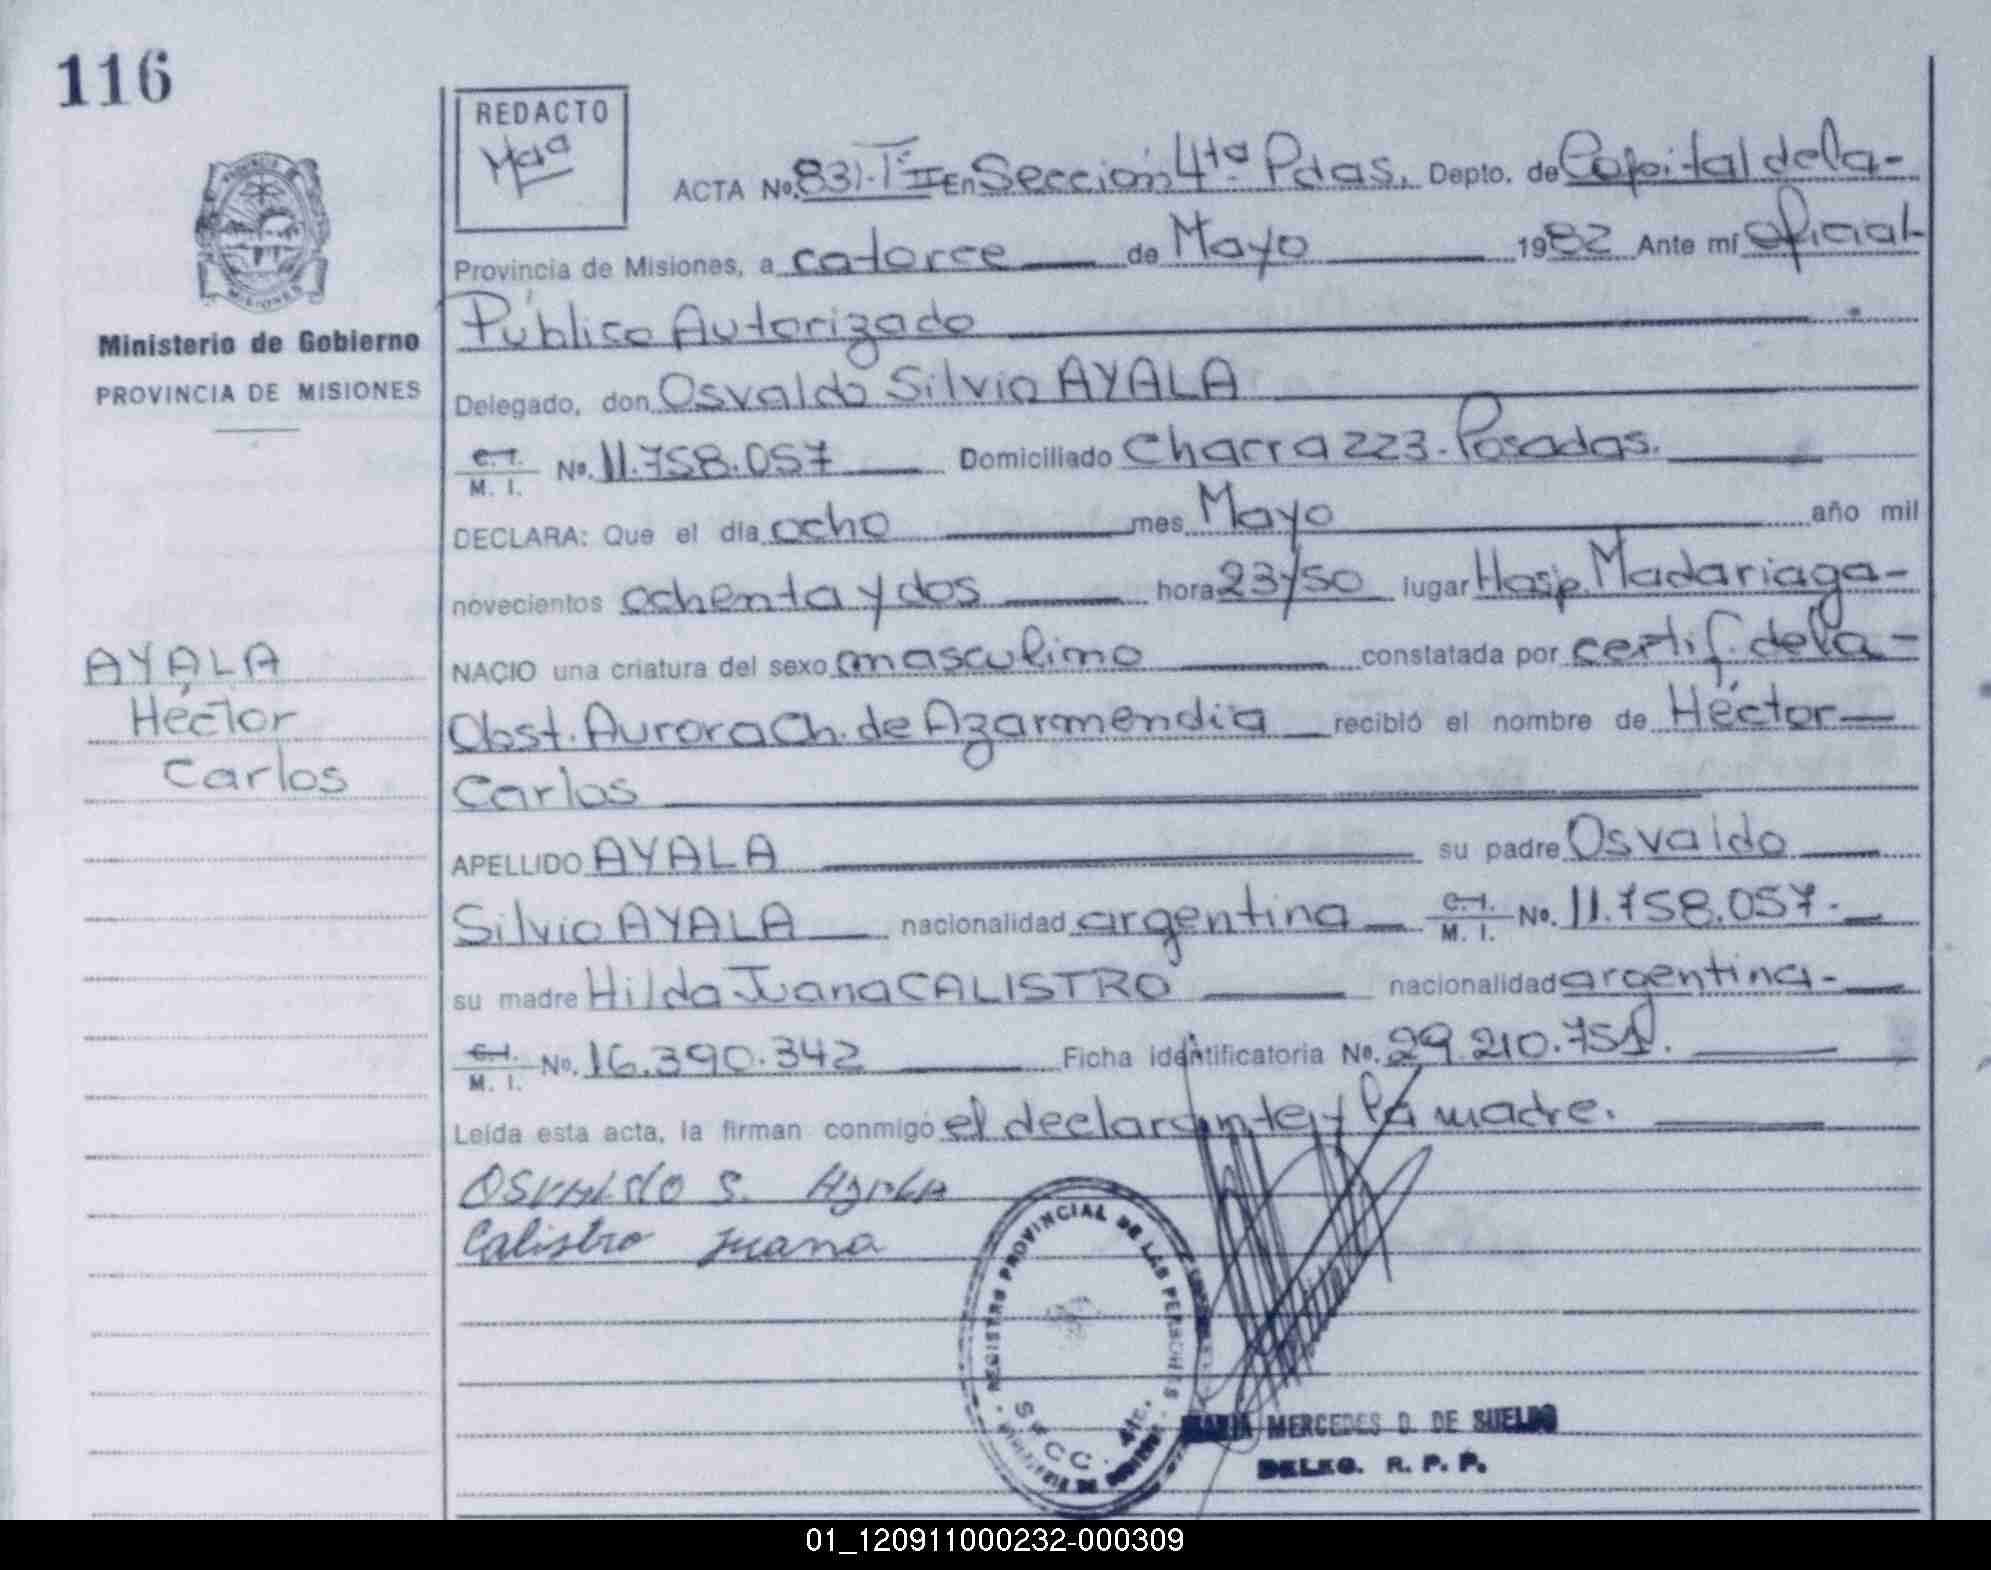 116
REDACTO
ACTA No. 831-Tº II En Sección 4ta Pdas. Depto. de Capital de la-
Provincia de Misiones, a catorce de Mayo 1982 Ante mí oficial
Público Autorizado
Ministerio de Gobierno
PROVINCIA DE MISIONES
Delegado, don Osvaldo Silvio AYALA
C.I. M. I. No. 11.758.057 Domiciliado Chacra 223-Posadas.
DECLARA: Que el día ocho mes Mayo año mil
novecientos ochenta y dos hora 23/50 lugar Hosp. Madariaga-
AYALA
Héctor
Carlos
NACIO una criatura del sexo masculino constatada por certif. de la-
Obst. Aurora Ch. de Azarmendia recibió el nombre de Héctor
Carlos
APELLIDO AYALA su padre Osvaldo
Silvio AYALA nacionalidad argentina C.I. M. I. No. 11.758.057.
su madre Hilda Juana CALISTRO nacionalidad argentina-
C.I. M. I. No. 16.390.342 Ficha identificatoria No. 29.210.751.
Leída esta acta, la firman conmigo el declarante y la madre.
Osvaldo S. Ayala
Calistro Juana
REGISTRO PROVINCIAL DE LAS PERSONAS
SECC. 4ta.
MARIA MERCEDES D. DE SUELDO
DELEG. R. P. P.
01_120911000232-000309